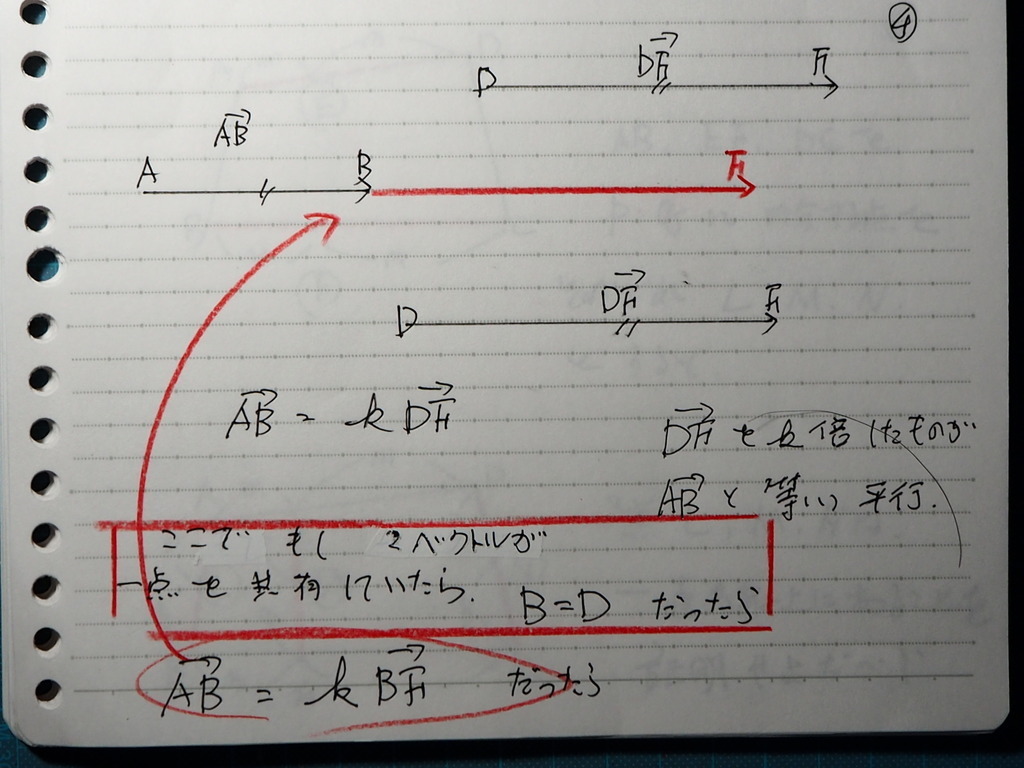 ④
D $\overrightarrow{DF}$ F
$\overrightarrow{AB}$
A B F
D $\overrightarrow{DF}$ F
$\overrightarrow{AB}$ = k $\overrightarrow{DF}$
$\overrightarrow{DF}$ を k 倍 したものが
$\overrightarrow{AB}$ と 等しい 平行.
ここで もし 2ベクトルが
一点を共有していたら.
B=D だったら
$\overrightarrow{AB}$ = k $\overrightarrow{BF}$ だったら